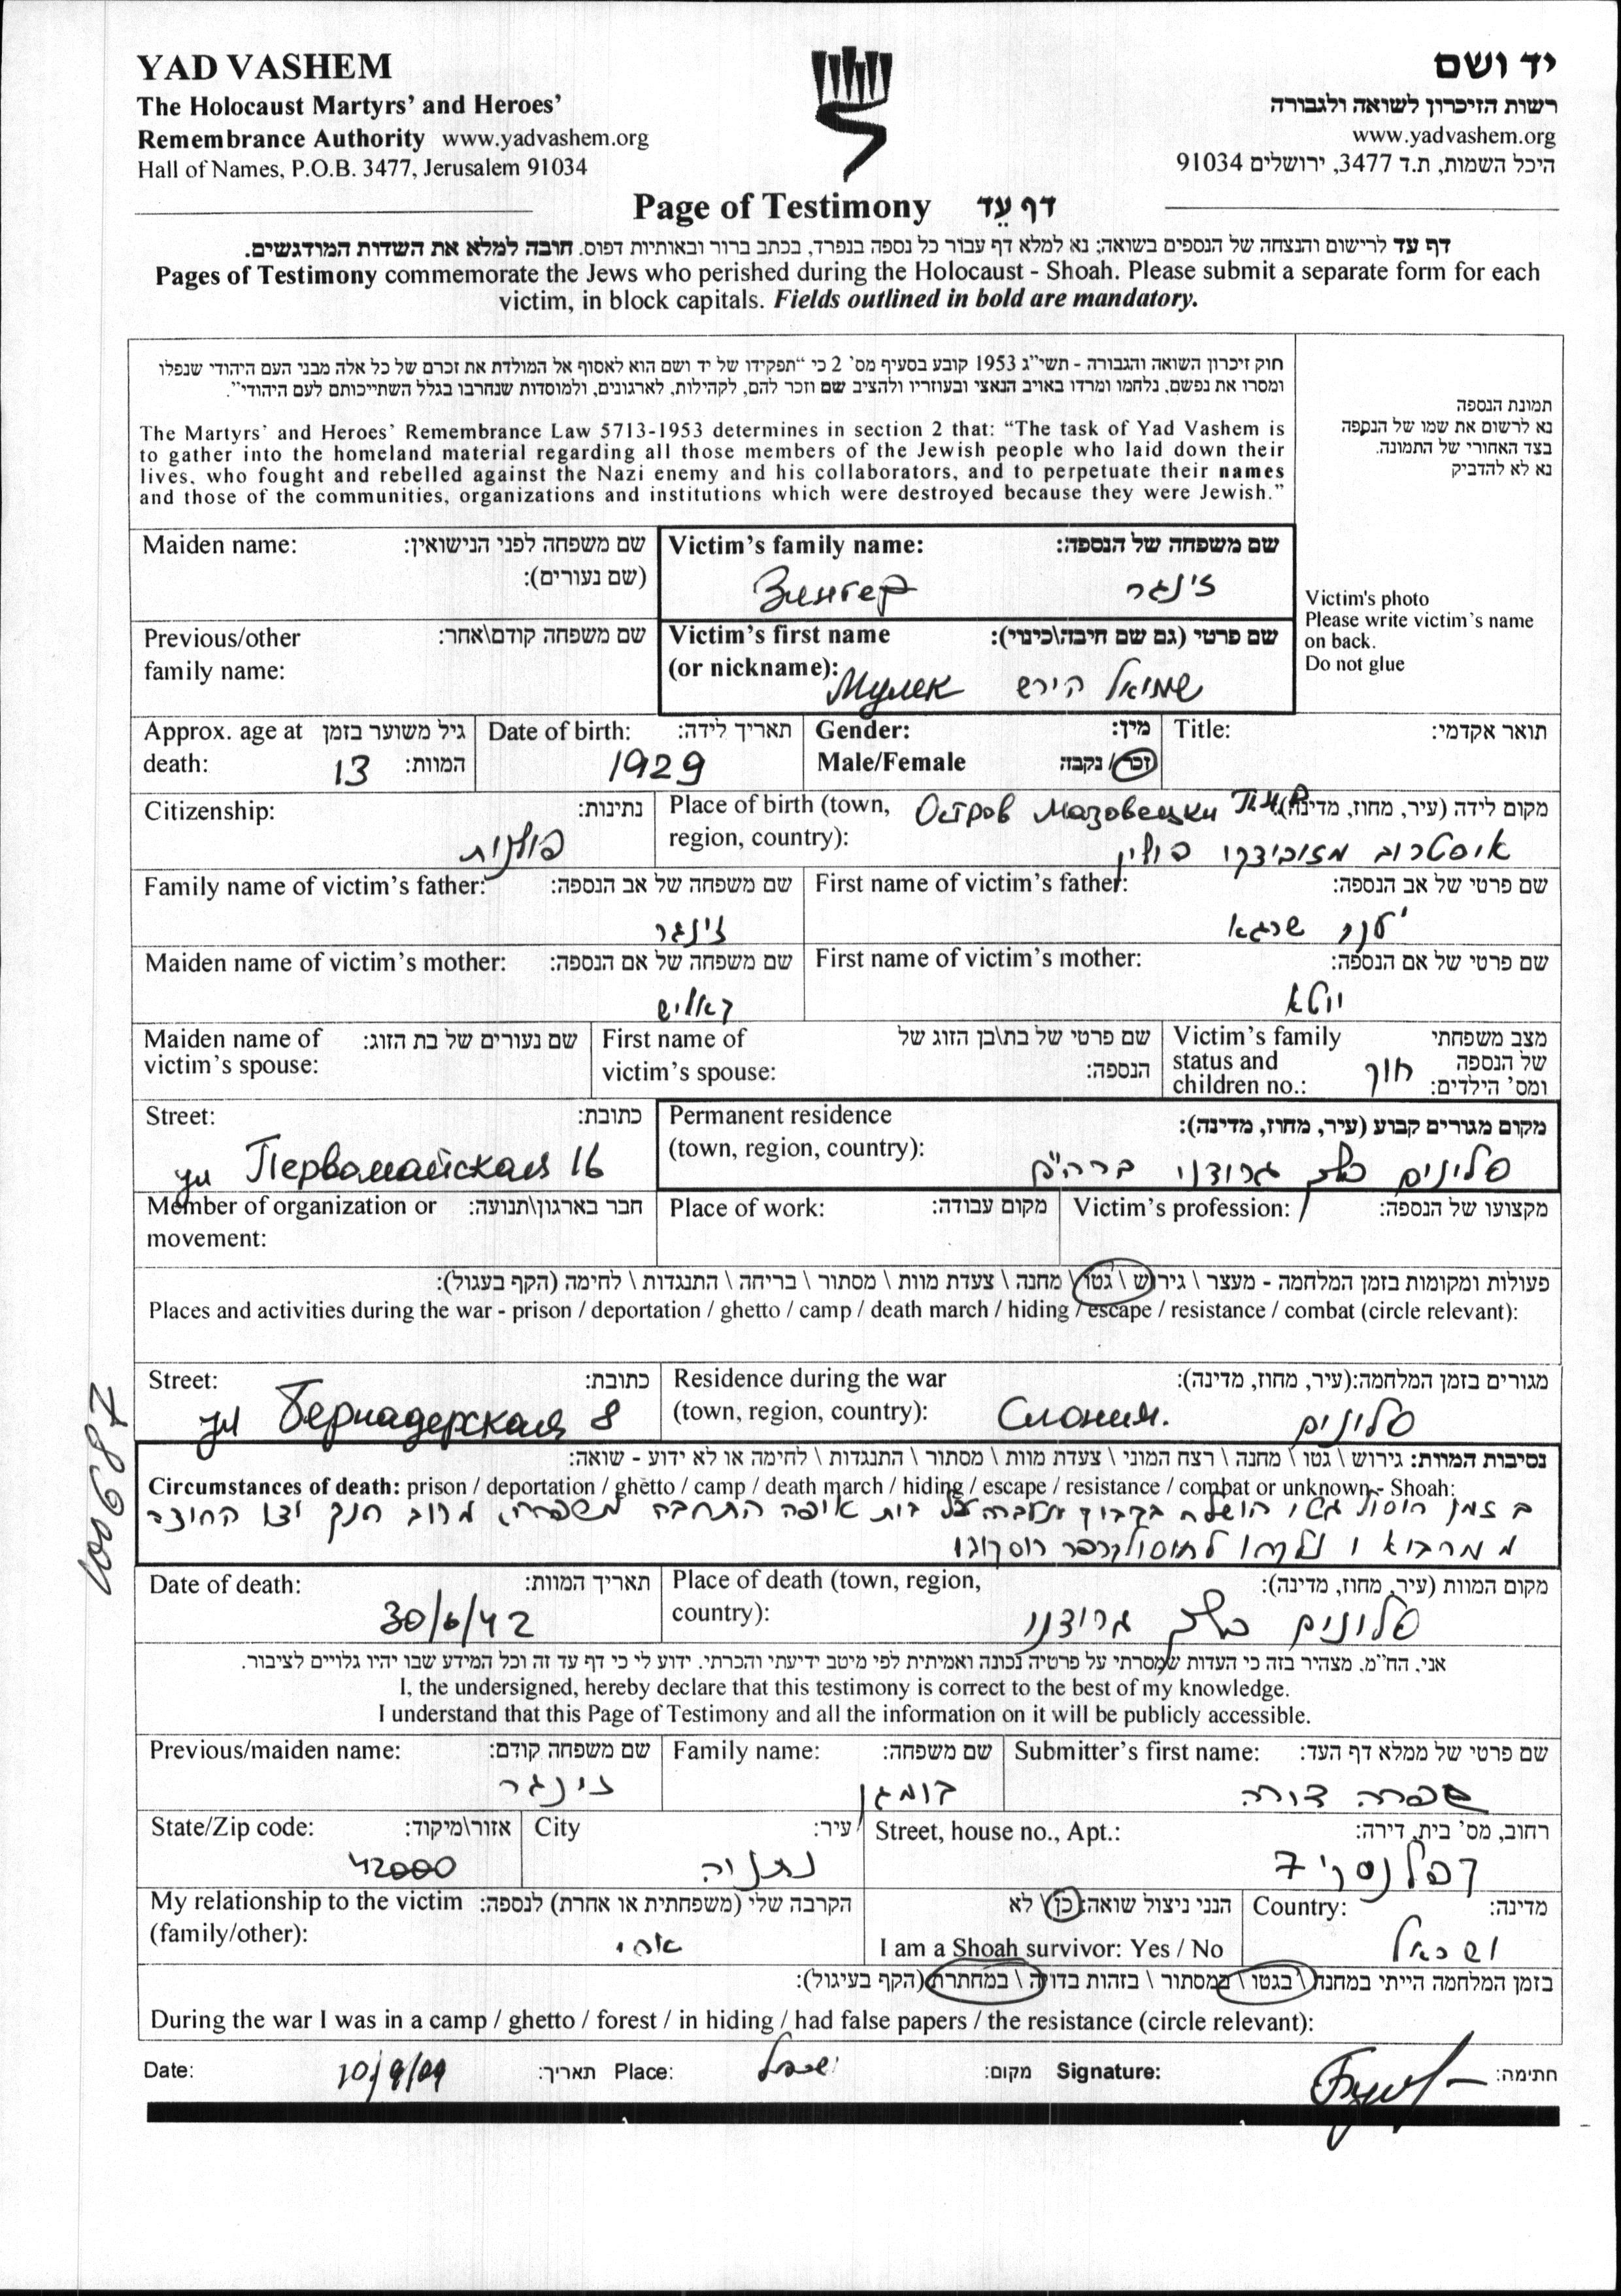 YAD VASHEM
The Holocaust Martyrs' and Heroes'
Remembrance Authority www.yadvashem.org
Hall of Names, P.O.B. 3477, Jerusalem 91034
יד ושם
רשות הזיכרון לשואה ולגבורה
www.yadvashem.org
היכל השמות, ת.ד 3477, ירושלים 91034
Page of Testimony דף עֵד
דף עד לרישום והנצחה של הנספים בשואה; נא למלא דף עבור כל נספה בנפרד, בכתב ברור ובאותיות דפוס. חובה למלא את השדות המודגשים.
Pages of Testimony commemorate the Jews who perished during the Holocaust - Shoah. Please submit a separate form for each
victim, in block capitals. Fields outlined in bold are mandatory.
חוק זיכרון השואה והגבורה - תשי"ג 1953 קובע בסעיף מס' 2 כי "תפקידו של יד ושם הוא לאסוף אל המולדת את זכרם של כל אלה מבני העם היהודי שנפלו
ומסרו את נפשם, נלחמו ומרדו באויב הנאצי ובעוזריו ולהציב שם וזכר להם, לקהילות, לארגונים, ולמוסדות שנחרבו בגלל השתייכותם לעם היהודי".
The Martyrs' and Heroes' Remembrance Law 5713-1953 determines in section 2 that: "The task of Yad Vashem is
to gather into the homeland material regarding all those members of the Jewish people who laid down their
lives, who fought and rebelled against the Nazi enemy and his collaborators, and to perpetuate their names
and those of the communities, organizations and institutions which were destroyed because they were Jewish."
תמונת הנספה
נא לרשום את שמו של הנספה
בצד האחורי של התמונה.
נא לא להדביק
Victim's photo
Please write victim's name
on back.
Do not glue
Maiden name: שם משפחה לפני הנישואין:
(שם נעורים):
Victim's family name: שם משפחה של הנספה:
Зингер זינגר
Previous/other שם משפחה קודם\אחר:
family name:
Victim's first name שם פרטי (גם שם חיבה\כינוי):
(or nickname):
Мулек שמואל הירש
Approx. age at גיל משוער בזמן
death: 13 המוות:
Date of birth: תאריך לידה:
1929
Gender: מין:
Male/Female זכר / נקבה
Title: תואר אקדמי:
Citizenship: נתינות:
פולנית
Place of birth (town, Остров Мазовецки מקום לידה (עיר, מחוז, מדינה):
region, country):
אוסטרוב מזוביצקי פולין
Family name of victim's father: שם משפחה של אב הנספה:
זינגר
First name of victim's father: שם פרטי של אב הנספה:
שרגא
Maiden name of victim's mother: שם משפחה של אם הנספה:
First name of victim's mother: שם פרטי של אם הנספה:
יוטא
Maiden name of שם נעורים של בת הזוג:
victim's spouse:
First name of שם פרטי של בת\בן הזוג של
victim's spouse: הנספה:
Victim's family מצב משפחתי
status and של הנספה
children no.: ומס' הילדים:
Street: כתובת:
ул Первомайская 16
Permanent residence מקום מגורים קבוע (עיר, מחוז, מדינה):
(town, region, country):
סלונים גרודנו
Member of organization or חבר בארגון\תנועה:
movement:
Place of work: מקום עבודה:
Victim's profession: מקצועו של הנספה:
פעולות ומקומות בזמן המלחמה - מעצר \ גירוש \ גטו \ מחנה \ צעדת מוות \ מסתור \ בריחה \ התנגדות \ לחימה (הקף בעגול):
Places and activities during the war - prison / deportation / ghetto / camp / death march / hiding / escape / resistance / combat (circle relevant):
Street: כתובת:
ул Бернадерская 8
Residence during the war מגורים בזמן המלחמה:(עיר, מחוז, מדינה):
(town, region, country): Слоним. סלונים
נסיבות המוות: גירוש \ גטו \ מחנה \ רצח המוני \ צעדת מוות \ מסתור \ התנגדות \ לחימה או לא ידוע - שואה:
Circumstances of death: prison / deportation / ghetto / camp / death march / hiding / escape / resistance / combat or unknown - Shoah:
ב זמן חיסול גטו בית אופה התחבה מרוב חנק יצו החוצה
ו נלקחו
100687
Date of death: תאריך המוות:
30/6/42
Place of death (town, region, מקום המוות (עיר, מחוז, מדינה):
country):
סלונים גרודנו
אני, הח"מ, מצהיר בזה כי העדות שמסרתי על פרטיה נכונה ואמיתית לפי מיטב ידיעתי והכרתי. ידוע לי כי דף עד זה וכל המידע שבו יהיו גלויים לציבור.
I, the undersigned, hereby declare that this testimony is correct to the best of my knowledge.
I understand that this Page of Testimony and all the information on it will be publicly accessible.
Previous/maiden name: שם משפחה קודם:
זינגר
Family name: שם משפחה:
בומגן
Submitter's first name: שם פרטי של ממלא דף העד:
שפרה דורה
State/Zip code: אזור\מיקוד:
42000
City עיר:
נתניה
Street, house no., Apt.: רחוב, מס' בית, דירה:
קפלנסקי 7
My relationship to the victim הקרבה שלי (משפחתית או אחרת) לנספה:
(family/other):
אחי
הנני ניצול שואה: כן \ לא
I am a Shoah survivor: Yes / No
Country: מדינה:
ישראל
בזמן המלחמה הייתי במחנה \ בגטו \ במסתור \ בזהות בדויה \ במחתרת (הקף בעיגול):
During the war I was in a camp / ghetto / forest / in hiding / had false papers / the resistance (circle relevant):
Date: 10/9/09 תאריך: Place: ישראל מקום: Signature: חתימה: